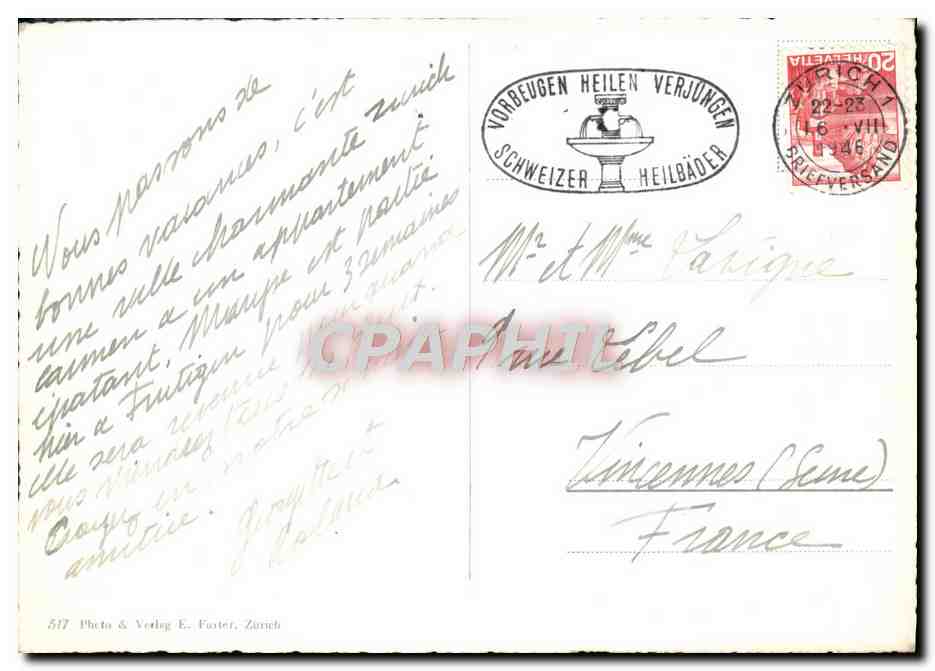 Nous passons de
bonnes vacances, c'est
une ville charmante zurich
carmen a un appartement
épatant, Maryse est partie
hier a Frutigen pour 3 semaines
elle sera revenue quand
vous viendrez
Croyez en notre
amitié.
VORBEUGEN HEILEN VERJÜNGEN
SCHWEIZER HEILBÄDER
20 HELVETIA
ZÜRICH 1
22-23
16 VIII
1946
BRIEFVERSAND
Mr et Mme Lavigne
9 rue Lebel
Vincennes (Seine)
France
CPAPHIL
517 Photo & Verlag E. Furter, Zürich